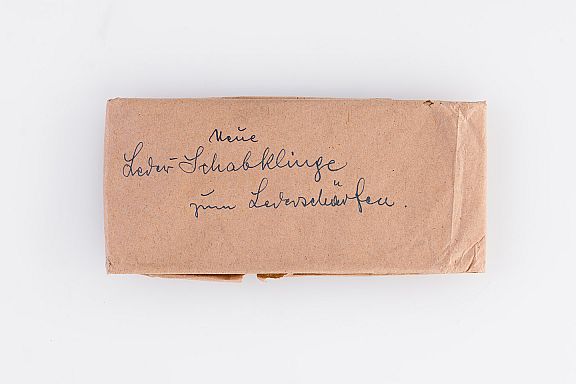 Neue
Leder-Schabklinge
zum Lederschärfen.